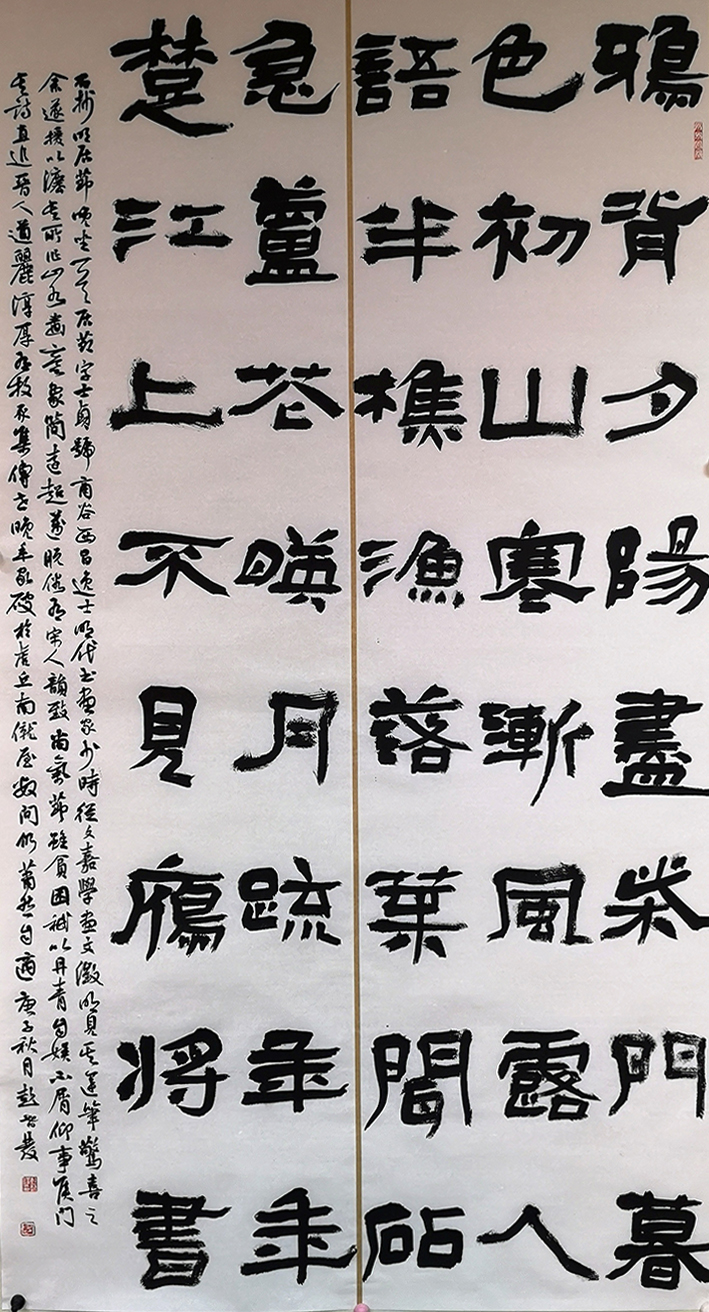 鴉背夕陽盡柴門暮
色初山寒漸風露人
語半樵漁落葉間砧
急蘆花暎月疏年年
楚江上不見鴈將書
右抄明居節晚坐一首居節字士貞號商谷西昌逸士明代書畫家少時從文嘉學畫文徵明見其運筆驚喜之
余遂授以法其所作山水畫意象簡遠超逸脫俗有宋人韻致尚氣節雖貧困祇以丹青自娛不屑仰事侯門
其詩直追晉人遒麗淳厚有牧豕集傳世晚年家破於虎丘南僦屋數間仍蕭然自適 庚子秋月彭